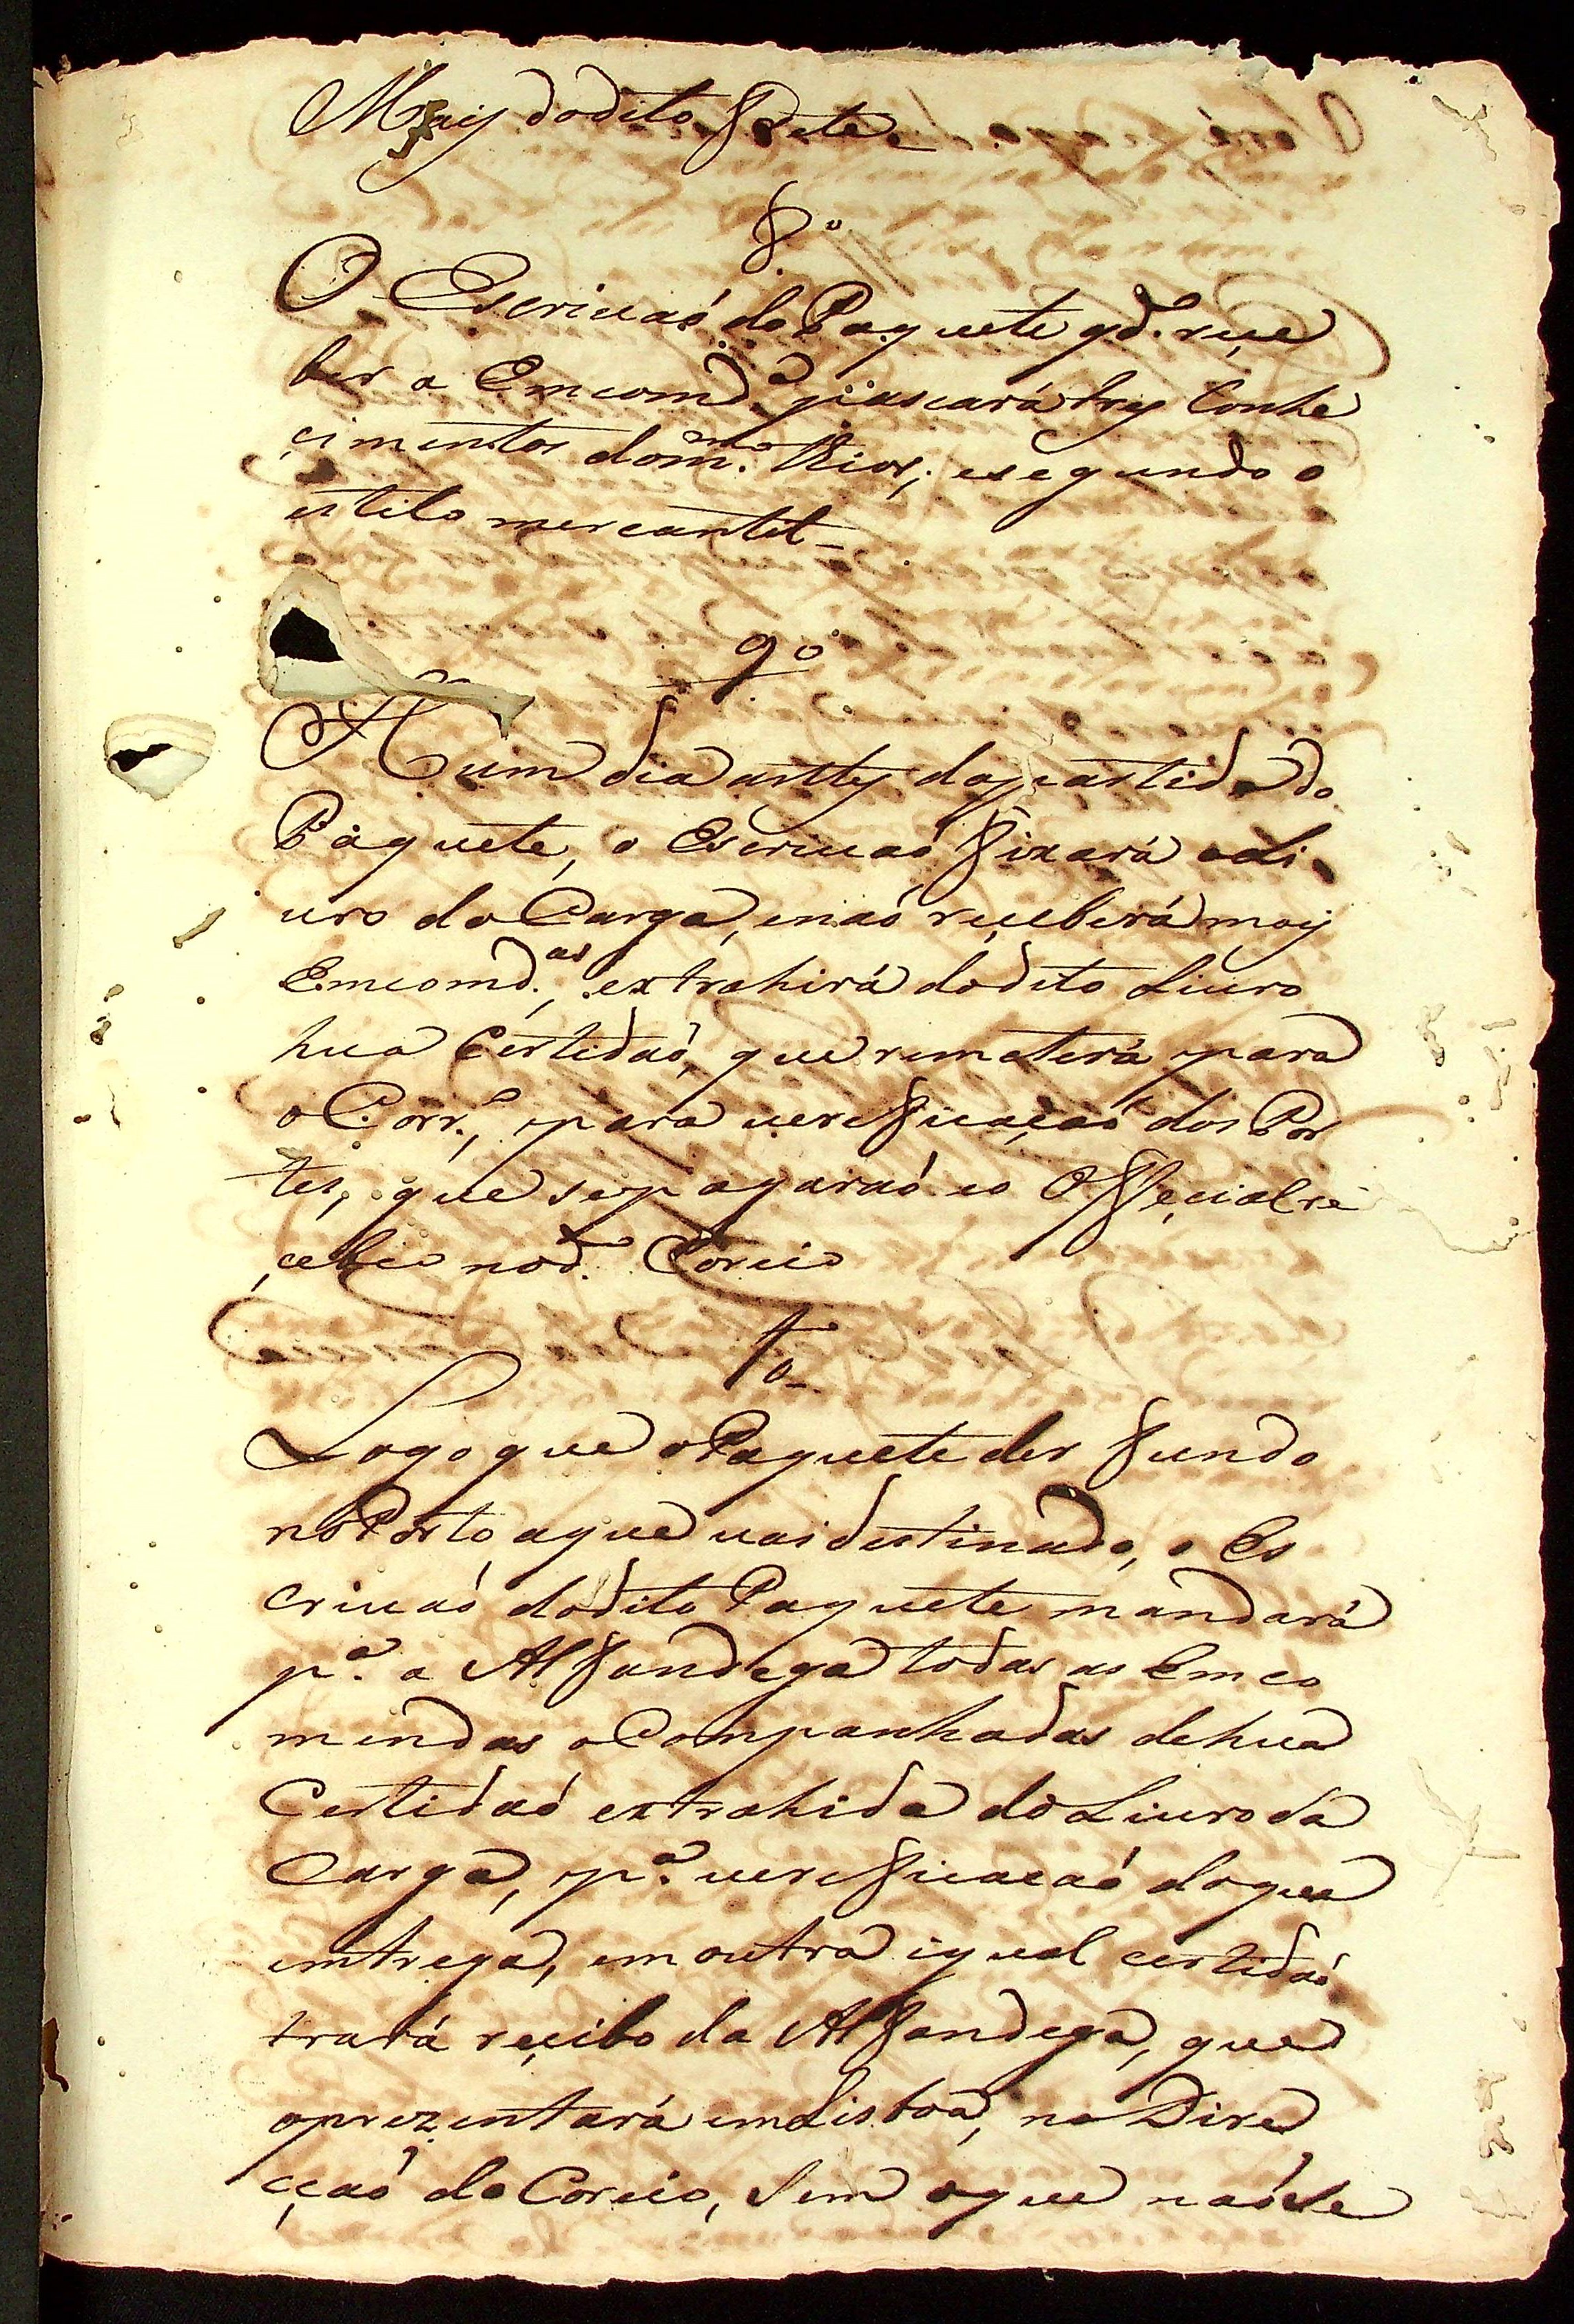 Mais dodito Frete
8.º
O Escrivaõ do Paquete qd.º rece
ber a Emcomd.ª passará tres Conhe
cimentos dom.mo theor; esegundo o
estilo mercantil
9º
Hum dia antes dapartida do
Paquete, o Escrivaõ fixará o Li
uro da Carga, enaõ receberá mais
Emcomd.as, extrahirá dodito Liuro
hua Certidaõ, que remeterá para
o Corr.º, para uerificaçaõ dos Por
tes, que sepagaraõ eo Official re
cebeo nod.º Correio
10
Logo que o Paquete der fundo
no Porto aque uai destinado, o Es
criuaõ dodito Paquete mandará
p.ª a Alfandega todas as Emco
mendas aCompanhadas dehua
Certidaõ extrahida do Liuro da
Carga, p.ª uerificacaõ doque
entrega, em outra igual certidaõ
trará recibo da Alfandega, que
aprezentará emLisboa, na Dire
cçaõ do Correio, Sem oque naõ se